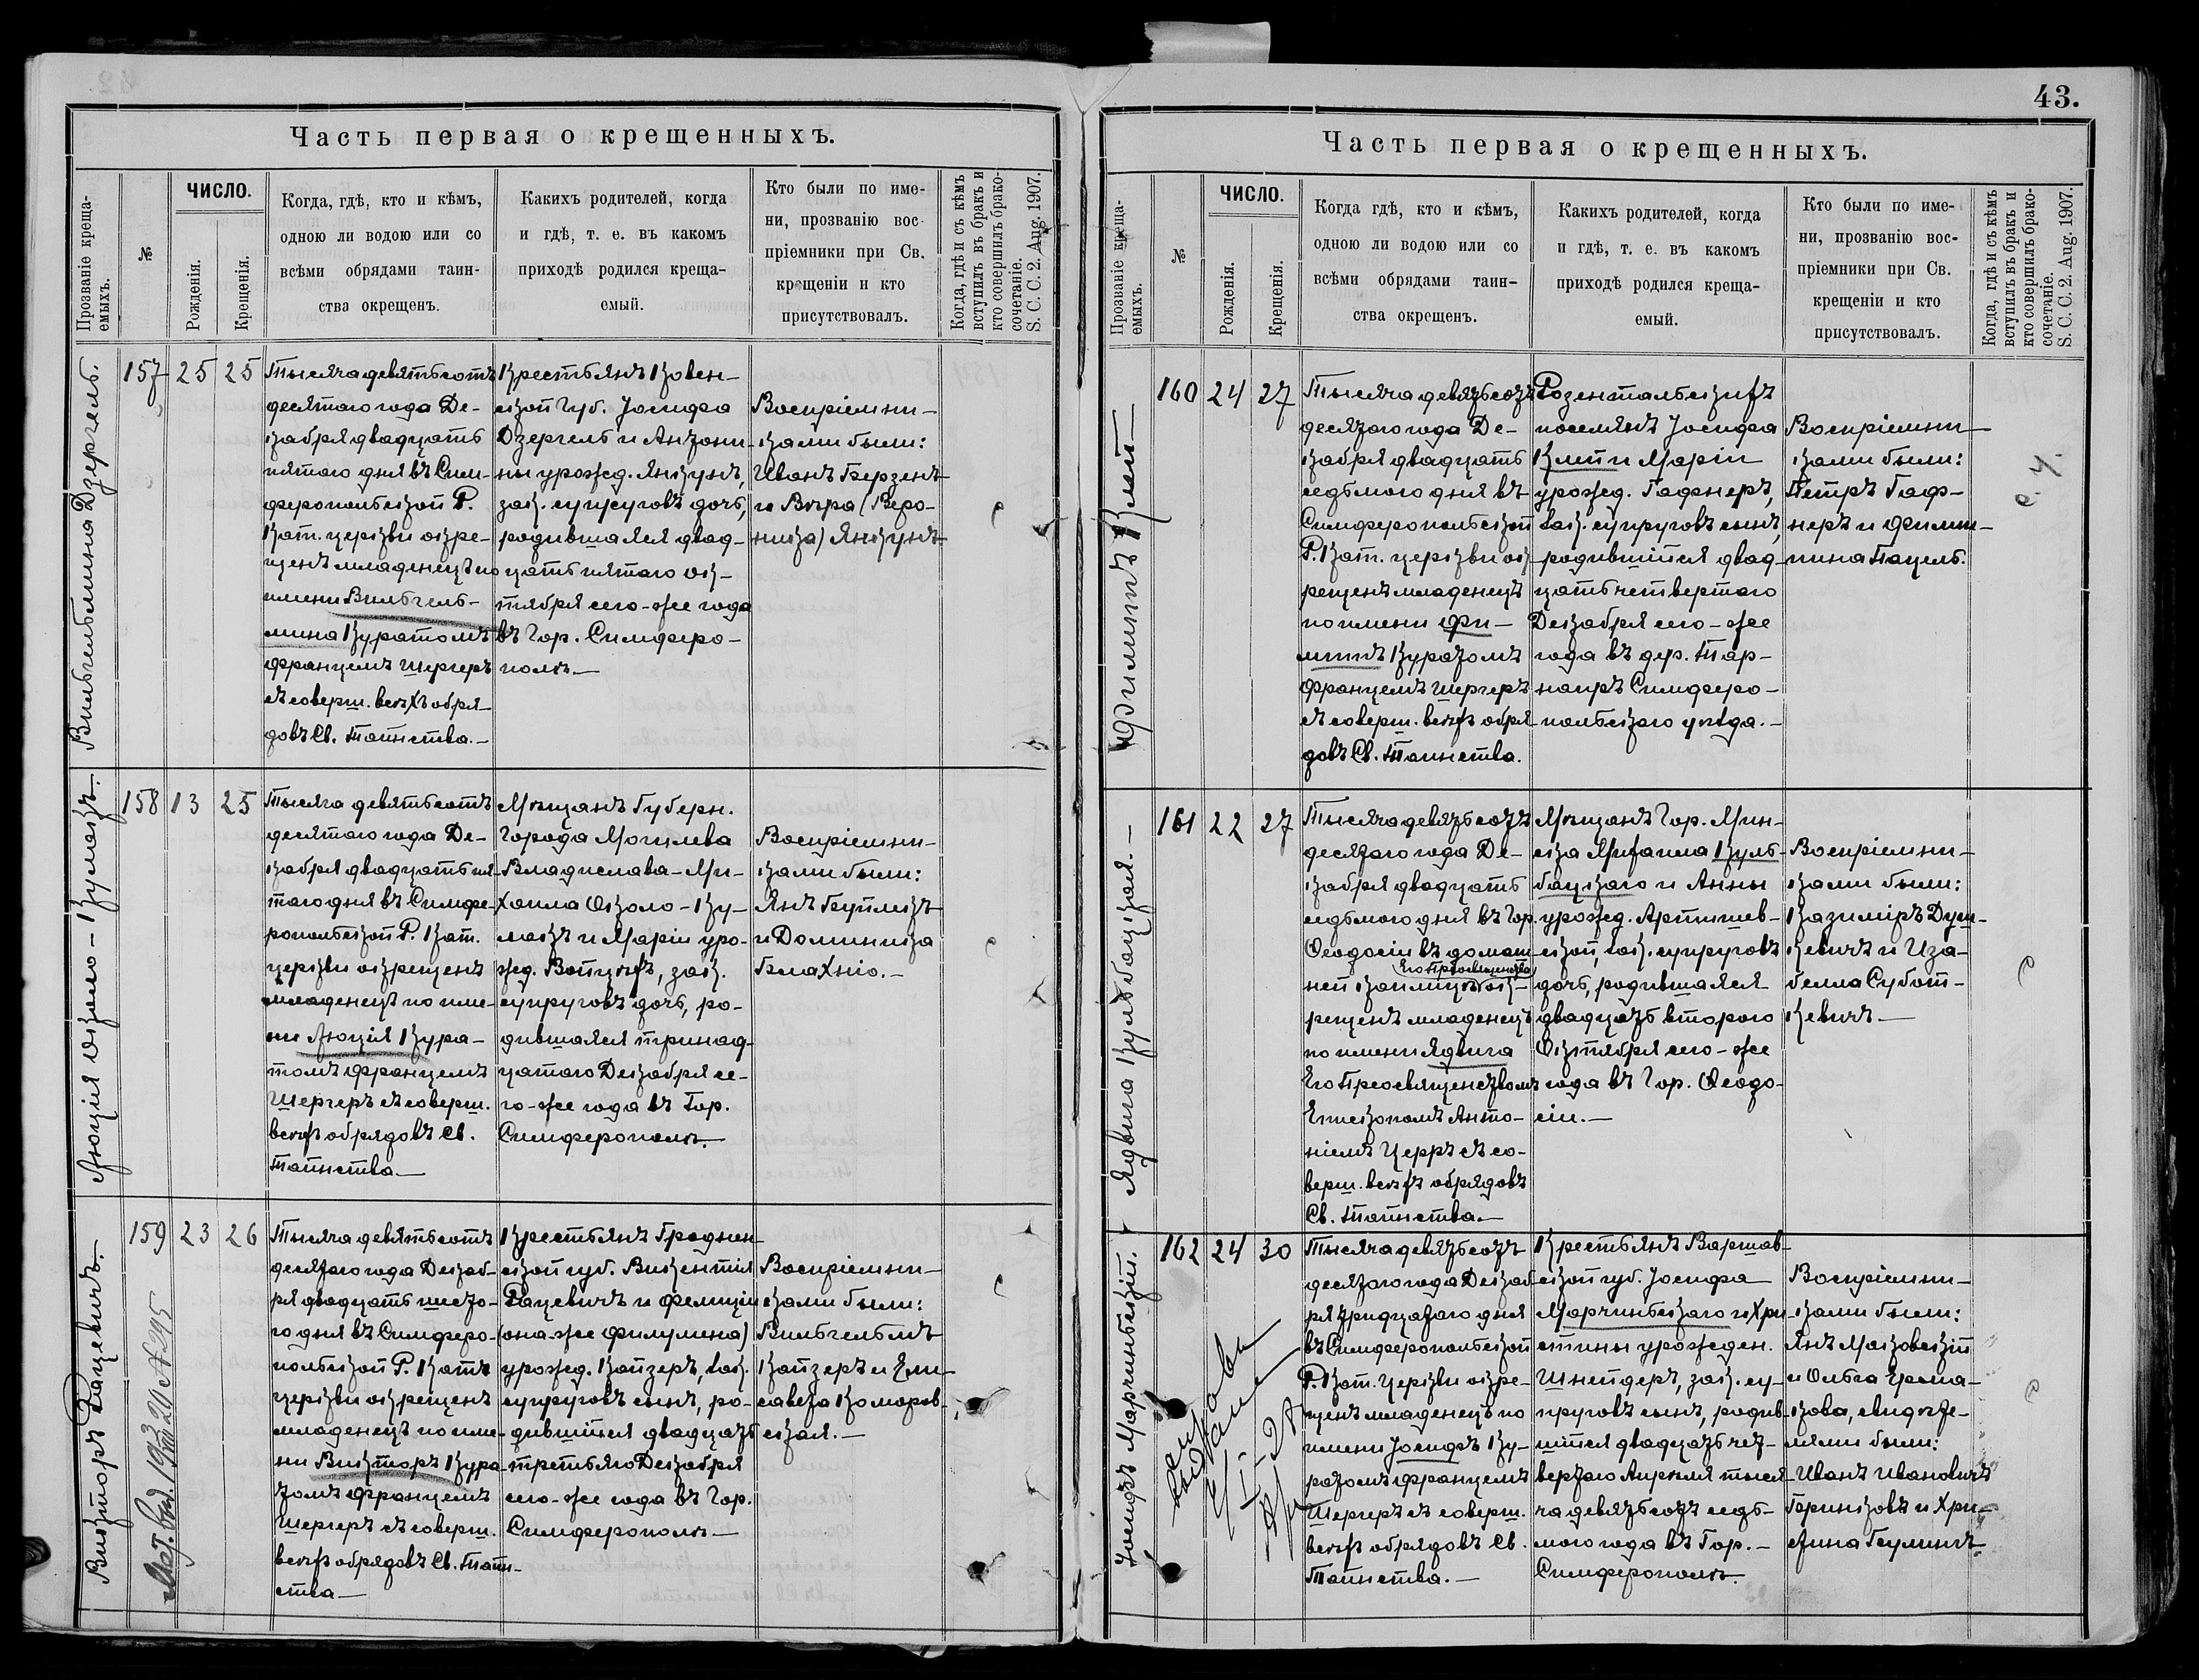 43.
Часть первая о крещенныхъ.
Прозваніе креща-
емыхъ.
№
ЧИСЛО.
Рожденія.
Крещенія.
Когда, гдѣ, кто и кѣмъ,
одною ли водою или со
всѣми обрядами таин-
ства окрещенъ.
Какихъ родителей, когда
и гдѣ, т. е. въ какомъ
приходѣ родился креща-
емый.
Кто были по име-
ни, прозванію вос-
пріемники при Св.
крещеніи и кто
присутствовалъ.
Когда, гдѣ и съ кѣмъ
вступилъ въ бракъ и
кто совершилъ брако-
сочетаніе.
S. C. C. 2. Aug. 1907.
Вильгельмина Дзергель.
157
25
25
Тысяча девятьсотъ
десятаго года Де-
кабря двадцать
пятаго дня въ Сим-
феропольской Р.
Кат. церкви окре-
щенъ младенецъ по
имени Вильгель-
мина Куратомъ
Францемъ Шергеръ
съ соверш. всѣхъ обря-
довъ Св. Таинства.-
Крестьянъ Ковен-
ской Губ. Іосифа
Дзергель и Антони-
ны урожд. Янкунъ,
зак. супруговъ дочь,
родившаяся двад-
цать пятаго ок-
тября сего-же года
въ Гор. Симферо-
полѣ.-
Воспріемни-
ками были:
Иванъ Берзенъ
и Вѣра (Веро-
ника) Янкунъ.
Люція Около-Кулакъ.
158
13
25
Тысяча девятьсотъ
десятаго года Де-
кабря двадцать пя-
таго дня въ Симфе-
ропольской Р. Кат.
церкви окрещенъ
младенецъ по име-
ни Люція Кура-
томъ Францемъ
Шергеръ съ соверш.
всѣхъ обрядовъ Св.
Таинства-
Мѣщанъ Губерн.
Города Могилева
Владислава-Ми-
хаила Околo-Ку-
лакъ и Маріи уро-
жд. Войцѣхъ, зак.
супруговъ дочь, ро-
дившаяся тринад-
цатаго Декабря се-
го-же года въ Гор.
Симферополѣ.
Воспріемни-
ками были:
Янъ
и Доминика
Блахніо.-
Викторъ Рацевичъ.-
159
23
26
Тысяча девятьсотъ
десятаго года Декаб-
ря двадцать шесто-
го дня въ Симферо-
польской Р. Катъ
церкви окрещенъ
младенецъ по име-
ни Викторъ Кура-
томъ Францемъ
Шергеръ съ соверш.
всѣхъ обрядовъ Св. Таин-
ства-
Крестьянъ Гроднен
ской губ. Викентія
Рацевичъ и Фелиціи
(она-же Филумена)
урожд. Кайзеръ, зак.
супруговъ сынъ, ро-
дившійся двадцать
третьяго Декабря
сего-же года въ Гор.
Симферополѣ-
Воспріемни-
ками были:
Вильгельмъ
Кайзеръ и Ели-
савета Коморов-
ская.-
Часть первая о крещенныхъ.
Прозваніе креща-
емыхъ.
№
ЧИСЛО.
Рожденія.
Крещенія.
Когда гдѣ, кто и кѣмъ,
одною ли водою или со
всѣми обрядами таин-
ства окрещенъ.
Какихъ родителей, когда
и гдѣ, т. е. въ какомъ
приходѣ родился креща-
емый.
Кто были по име-
ни, прозванію вос-
пріемники при Св.
крещеніи и кто
присутствовалъ.
Когда, гдѣ и съ кѣмъ
вступилъ въ бракъ и
кто совершилъ брако-
сочетаніе.
S. C. C. 2. Aug. 1907.
Филиппъ
160
24
27
Тысяча девятьсотъ
десятаго года Де-
кабря двадцать
седьмого дня въ
Симферопольской
Р. Кат. церкви ок-
рещенъ младенецъ
по имени Фи-
липпъ Куратомъ
Францемъ Шергеръ
съ соверш. всѣхъ обря-
довъ Св. Таинства.
Розентальскихъ
поселянъ Іосифа
и Маріи
урожд. Гафнеръ,
зак. супруговъ сынъ,
родившійся двад-
цать четвертаго
Декабря сего-же
года въ дер. Тар-
наиръ Симферо-
польскаго уѣзда.-
Воспріемни-
ками были:
Петръ Гаф-
неръ и Филип-
пина Пацель.
Ядвига Кульбацкая.-
161
22
27
Тысяча девятьсотъ
десятаго года Де-
кабря двадцать
седьмого дня въ Гор.
Ѳеодосіи въ домаш-
ней каплицѣ Его Преосвященства ок-
рещенъ младенецъ
по имени Ядвига
Его Преосвященствомъ
Епископомъ Анто-
ніемъ Церръ съ со-
верш. всѣхъ обрядовъ
Св. Таинства.-
Мѣщанъ Гор. Мин-
ска Михаила Куль-
бацкаго и Анны
урожд. Арцишев-
ской, зак. супруговъ
дочь, родившаяся
двадцать второго
Октября сего-же
года въ Гор. Ѳеодо-
сіи.-
Воспріемни-
ками были:
Казиміръ Душ-
кевичъ и Иза-
белла Субот-
кевичъ-
Іосифъ Марчиньскій.
162
24
30
Тысяча девятьсотъ
десятаго года Декаб-
ря тридцатаго дня
въ Симферопольской
Р. Кат. церкви окре-
щенъ младенецъ по
имени Іосифъ Ку-
ратомъ Францемъ
Шергеръ съ соверш.
всѣхъ обрядовъ Св.
Таинства.-
Крестьянъ Варшав-
ской губ. Іосифа
Марчиньскаго и Хри-
стины урожден.
Шнейдеръ, зак. су-
пруговъ сынъ, родив-
шійся двадцать чет-
вертаго Апрѣля тыся-
ча девятьсотъ седь-
мого года въ Гор.-
Симферополѣ.
Воспріемни-
ками были:
Янъ Маковскій
и Ольга Ерма-
кова, свидѣте-
лями были:
Иванъ Ивановичъ